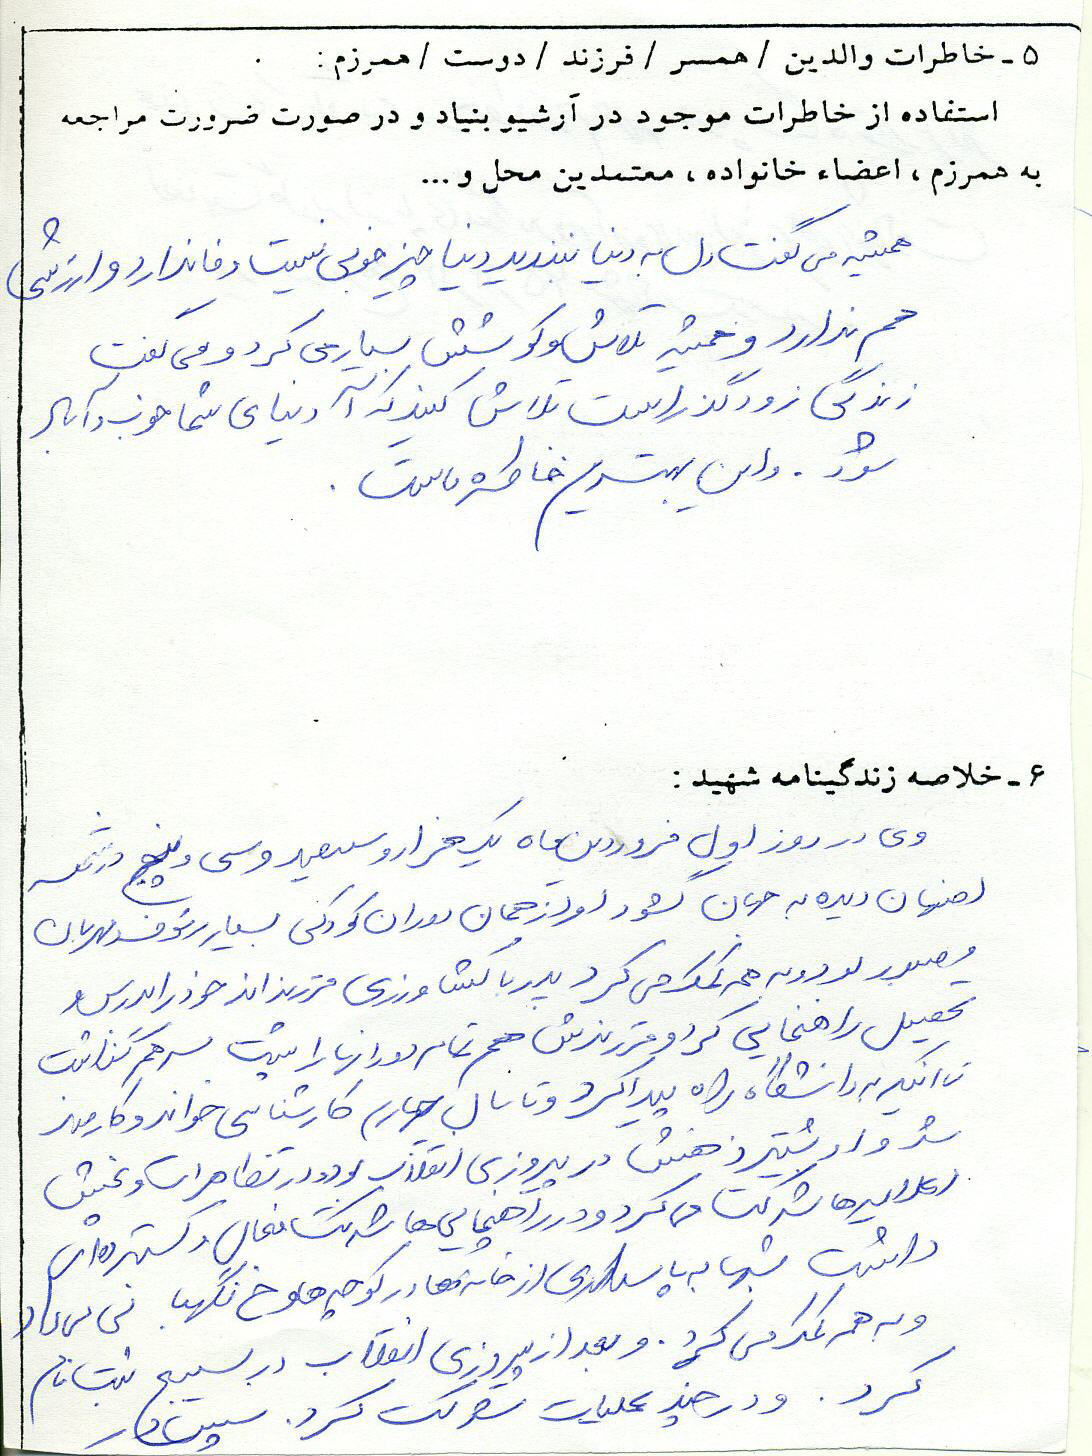 ۵ ـ خاطرات والدین / همسر / فرزند / دوست / همرزم :
استفاده از خاطرات موجود در آرشیو بنیاد و در صورت ضرورت مراجعه
به همرزم ، اعضاء خانواده ، معتمدین محل و ...
همیشه می گفت دل به دنیا نبندید دنیا چیز خوبی نیست وفا ندارد و ارزشی
هم ندارد و همیشه تلاش و کوشش بسیار می کرد و می گفت
زندگی زودگذر است تلاش کنید که آن دنیای شما خوب و آباد
شود . و این بهترین خاطره ماست .
۶ ـ خلاصه زندگینامه شهید :
وی در روز اول فروردین ماه یک هزار و سیصد و سی و پنج در
اصفهان دیده به جهان گشود او از همان دوران کودکی بسیار رئوف و مهربان
و صبور بود و به همه کمک می کرد پدر با کشاورزی فرزندان خود را به درس و
تحصیل راهنمایی کرد و فرزندش هم تمام دورانها را پشت سر هم گذاشت
تا اینکه به دانشگاه راه پیدا کرد و تا سال چهارم کارشناسی خواند و کارمند
شد و او بیشتر ذهنش در پیروزی انقلاب بود و در تظاهرات و پخش
اعلامیه ها شرکت می کرد و در راهپیمایی ها شرکت فعال و گسترده ای
داشت شبها به پاسداری از خانه ها در کوچه ها نگهبانی می داد
و به همه کمک می کرد . و بعد از پیروزی انقلاب در بسیج ثبت نام
کرد . و در چند عملیات شرکت کرد .